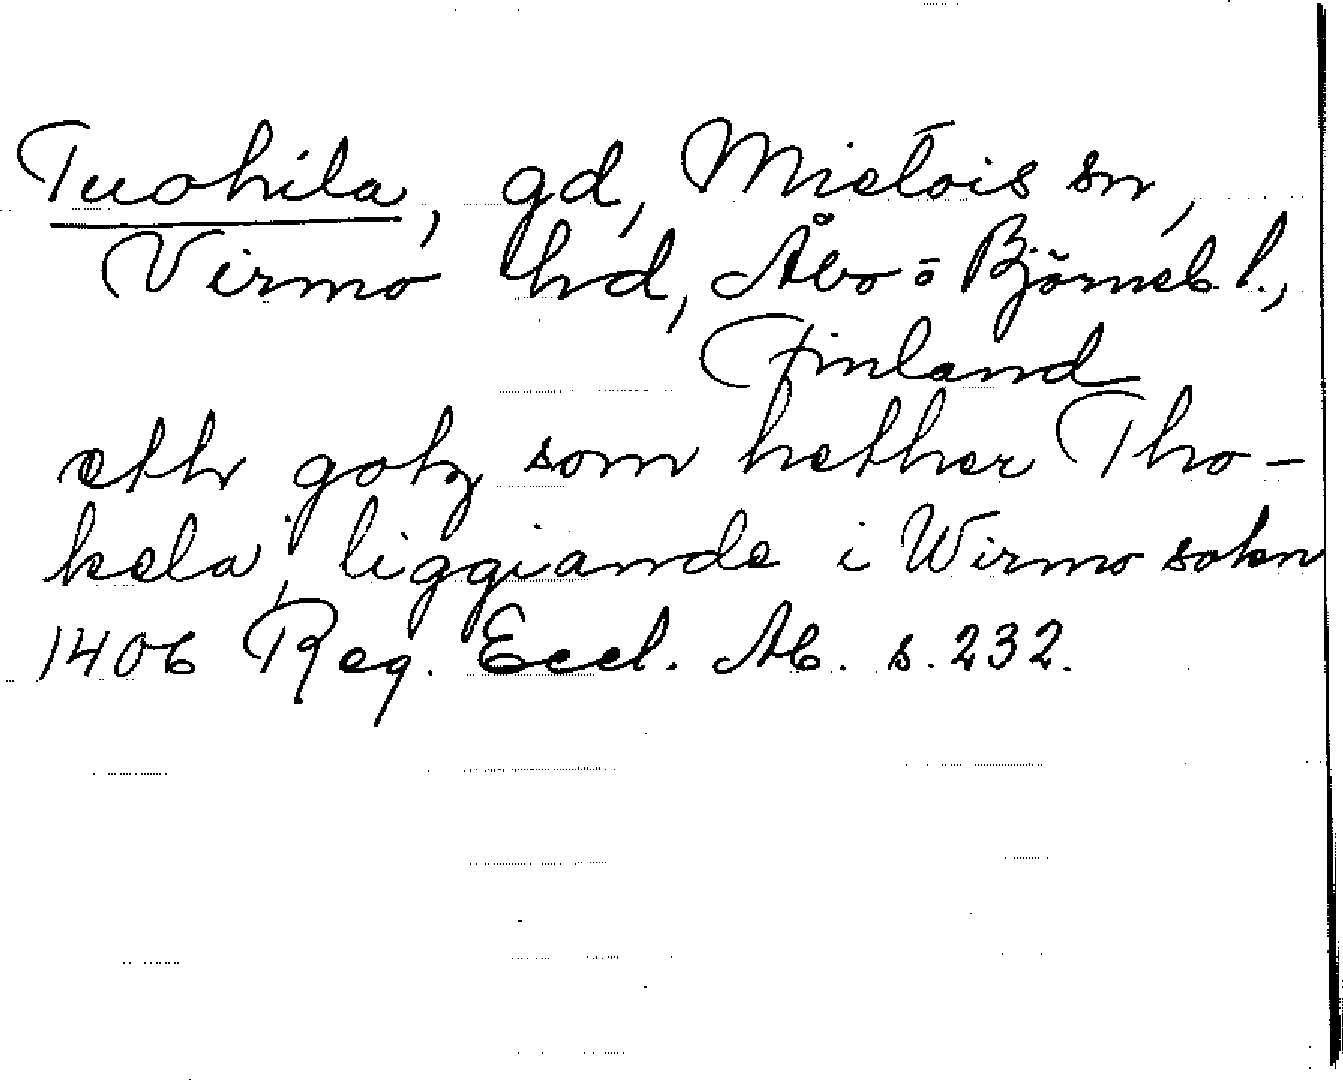 Tuohila, gd, Mietois sn,
Virmo hd, Åbo = Björneb. l.,
Finland
etth gotz som hether Tho-
kela, liggiande i Wirmo sokn
1406 Reg. Eccl. Ab. s. 232.